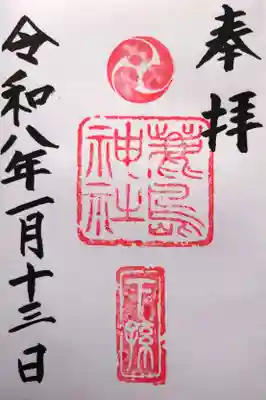 奉拝
神社
令和八年一月十三日